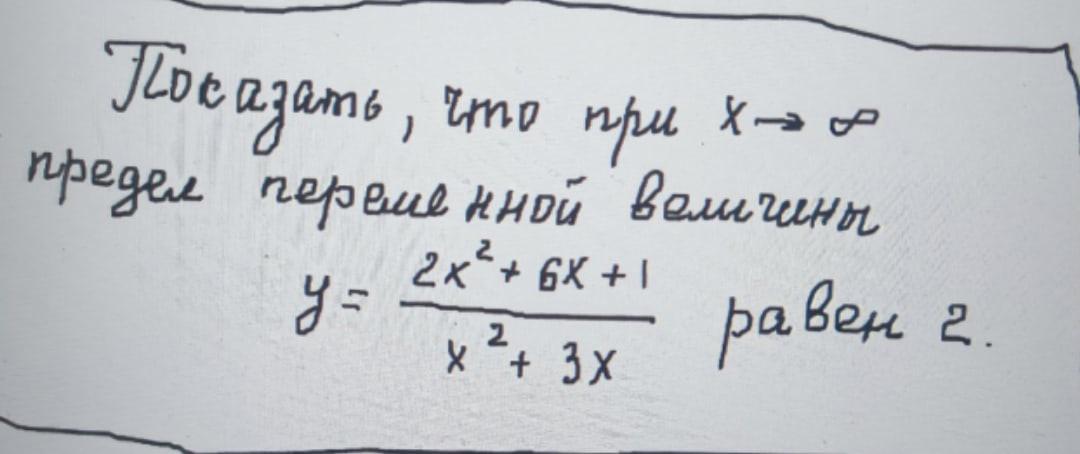 Показать, что при x → ∞
предел переменной величины
y = \frac{2x^2 + 6x + 1}{x^2 + 3x} равен 2.